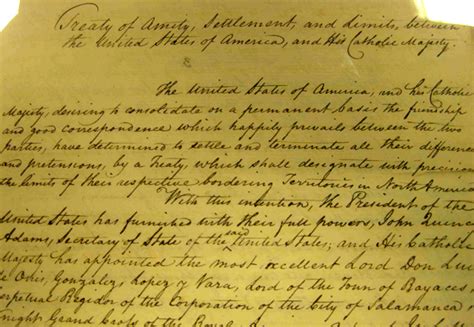 Treaty of Amity, Settlement, and Limits, between
the United States of America, and His Catholic Majesty.
The United States of America, and his Catholic
Majesty, desiring to consolidate on a permanent basis the friendship
and good correspondence which happily prevails between the two
parties, have determined to settle and terminate all their differences
and pretensions, by a Treaty, which shall designate with precision
the limits of their respective bordering Territories in North America
With this intention, the President of the
United States has furnished with their full powers, John Quincy
Adams, Secretary of State of the said United States; and His Catholic
Majesty has appointed the most excellent Lord Don Luis
de Onis, Gonzalez, Lopez y Vara, Lord of the Town of Rayaces
Perpetual Regidor of the Corporation of the City of Salamanca
Knight Grand Cross of the Royal